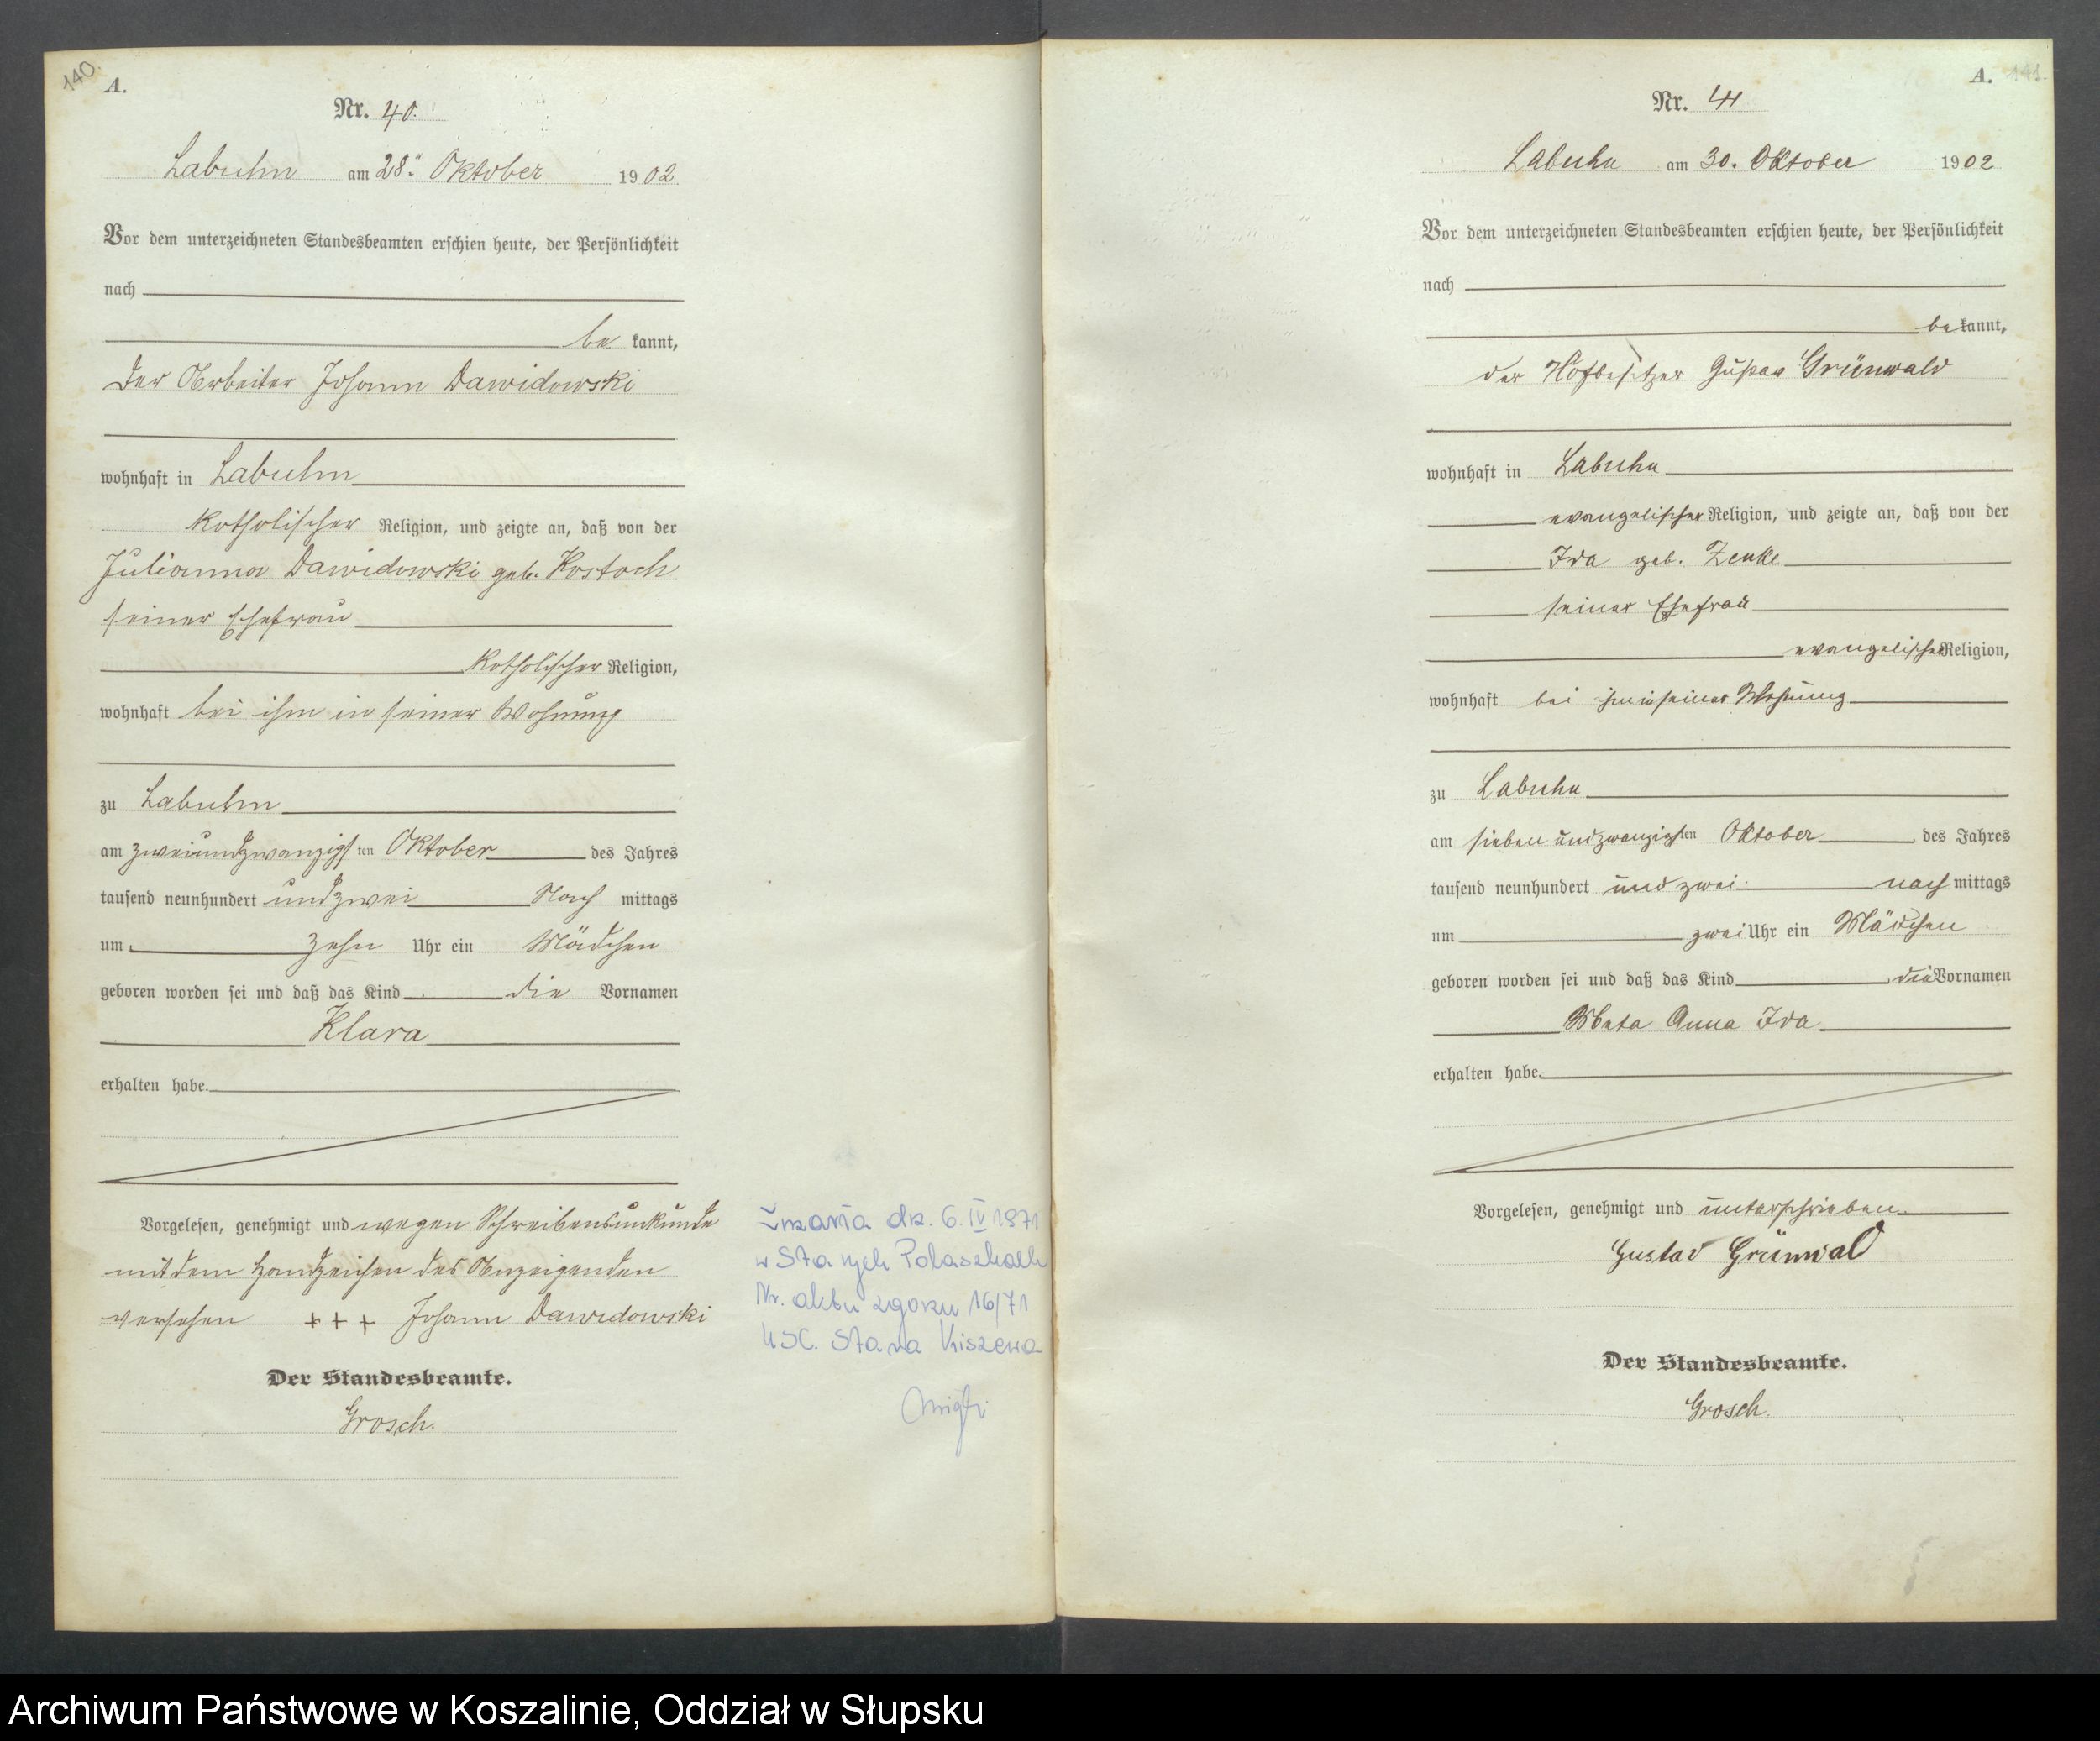 140.
A.
Nr. 40.
Labuhn am 28. Oktober 1902
Vor dem unterzeichneten Standesbeamten erschien heute, der Persönlichkeit
nach
be kannt,
der Arbeiter Johann Dawidowski
wohnhaft in Labuhn
katholischer Religion, und zeigte an, daß von der
Julianna Dawidowski geb. Kostoch
seiner Ehefrau
katholischer Religion,
wohnhaft bei ihm in seiner Wohnung
zu Labuhn
am zweiundzwanzigsten Oktober des Jahres
tausend neunhundert undzwei Nach mittags
um zehn Uhr ein Mädchen
geboren worden sei und daß das Kind die Vornamen
Klara
erhalten habe.
Vorgelesen, genehmigt und wegen Schreibensunkunde
mit dem Handzeichen des Anzeigenden
versehen +++ Johann Dawidowski
Der Standesbeamte.
Grosch.
Zmarła dn. 6.IV 1971
w Starych Polaszkach
Nr. aktu zgonu 16/71
USC. Stara Kiszewa
A. 141.
Nr. 41
Labuhn am 30. Oktober 1902
Vor dem unterzeichneten Standesbeamten erschien heute, der Persönlichkeit
nach
bekannt,
der Hofbesitzer Gustav Grünwald
wohnhaft in Labuhn
evangelischer Religion, und zeigte an, daß von der
Ida geb. Zenke
seiner Ehefrau
evangelischer Religion,
wohnhaft bei ihm in seiner Wohnung
zu Labuhn
am sieben undzwanzigsten Oktober des Jahres
tausend neunhundert und zwei nach mittags
um zwei Uhr ein Mädchen
geboren worden sei und daß das Kind die Vornamen
Meta Anna Ida
erhalten habe.
Vorgelesen, genehmigt und unterschrieben.
Gustav Grünwald
Der Standesbeamte.
Grosch.
Archiwum Państwowe w Koszalinie, Oddział w Słupsku